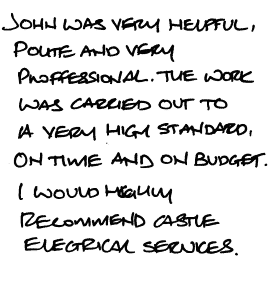 JOHN WAS VERY HELPFUL,
POLITE AND VERY
PROFFESSIONAL. THE WORK
WAS CARRIED OUT TO
A VERY HIGH STANDARD,
ON TIME AND ON BUDGET.
I WOULD HIGHLY
RECOMMEND CASTLE
ELECTRICAL SERVICES.